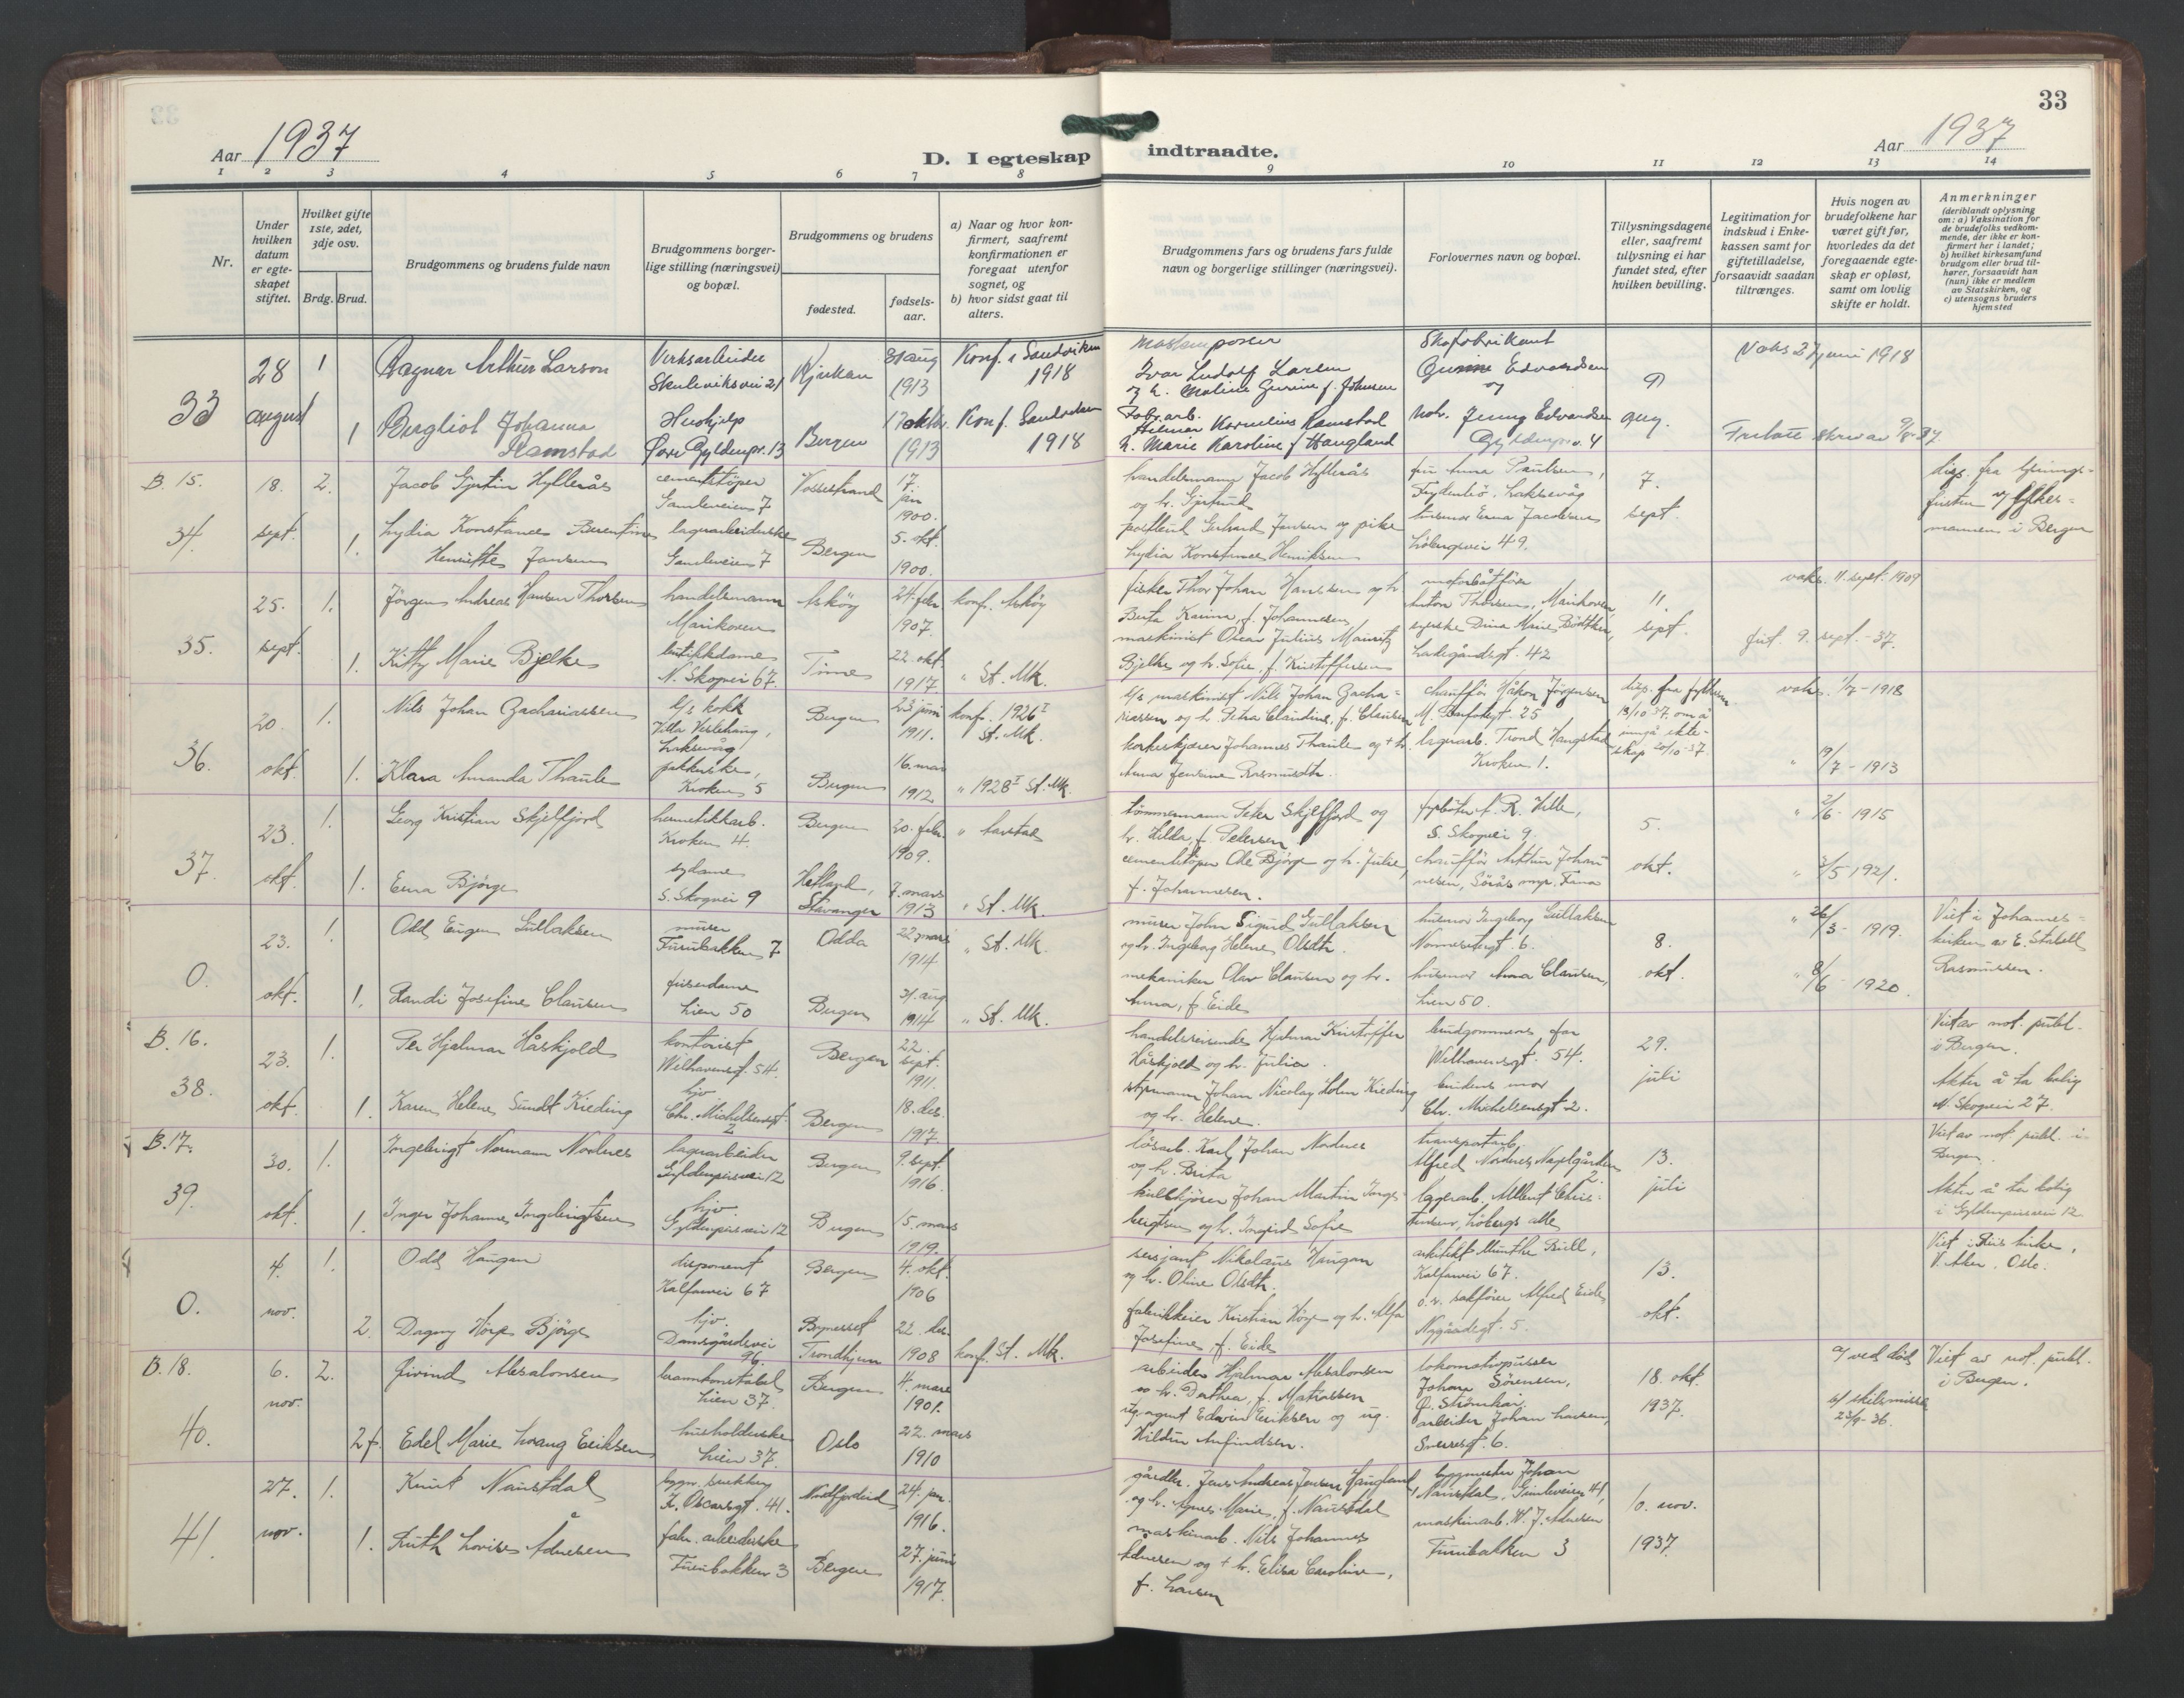 33
Aar 1937
D. I egteskap indtraadte.
Aar 1937
1 2 3 4 5 6 7 8 9 10 11 12 13 14
Nr.
Under hvilken datum er egteskapet stiftet.
Hvilket gifte 1ste, 2det, 3dje osv.
Brdg. Brud.
Brudgommens og brudens fulde navn
Brudgommens borgerlige stilling (næringsvei) og bopæl.
Brudgommens og brudens
fødested.
fødselsaar.
a) Naar og hvor konfirmert, saafremt konfirmationen er foregaat utenfor sognet, og
b) hvor sidst gaat til alters.
Brudgommens fars og brudens fars fulde navn og borgerlige stillinger (næringsvei).
Forlovernes navn og bopæl.
Tillysningsdagene eller, saafremt tillysning ei har fundet sted, efter hvilken bevilling.
Legitimation for indskud i Enkekassen samt for giftetilladelse, forsaavidt saadan tiltrænges.
Hvis nogen av brudefolkene har været gift før, hvorledes da det foregaaende egteskap er opløst, samt om lovlig skifte er holdt.
Anmerkninger
(deriblandt oplysning om: a) Vaksination for de brudefolks vedkommende, der ikke er konfirmert her i landet; b) hvilket kirkesamfund brudgom eller brud tilhører, forsaavidt han (hun) ikke er medlem av Statskirken, og c) utensogns bruders hjemsted
33 28 august
1 Ragnar Arthur Larson Verksarbeider Skuleviksvei 21 Rjukan 31 aug 1913 Konf. i Sandviken 1918 Ivar Ludolf Larsen Skofabrikant Edvardsen og 9 Vaks 27 juni 1918
1 Bergliot Johanna Ramstad Hushjelp Øvre Gyldenpr. 13 Bergen 17 oktbr. 1913 Konf. Sandviken 1918 Fabr.arb. Hilmar Kornelius Ramstad h. Marie Karoline f Haugland Jenny Edvardsen Gyldenpr.v. 4 aug.
B. 15. 34. 18. sept.
2. Jacob Gjertin Hyllerås cementstøper Gamleveien 7 Vossestrand 17. jan 1900. handelsmann Jacob Hyllerås og h. Gjertrud fru Anna Paulsen, Frydenbö, Laksevåg 7. sept. disp. fra fylkesmannen i Bergen
1. Lydia Konstance Berentine Henriette Jansen lagerarbeiderske Gamleveien 7 Bergen 5. okt. 1900. postbud Gerhard Jansen og pike Lydia Konstance Henriksen husmor Erna Jacobsen Löbergsvei 49.
35. 25. sept.
1. Jörgen Andreas Hansen Thorsen handelsmann Marikoven Askøy 24. febr. 1907. konf. Askøy fisker Thor Johan Hanssen og h. Berta Karine, f. Johannesen motorbåtförer Anton Thorsen, Marikoven, 11. sept. vaks. 11. sept. 1909
1. Kitty Marie Bjelke butikkdame N. Skogvei 67. Time 22. okt. 1917 " St. Mk. maskinist Oscar Julius Mauritz Bjelke og h. Sofie, f. Kristoffersen syerske Dina Marie Bödtker, Ladegårdsgt. 42 9. sept. -37.
36. 20. okt.
1. Nils Johan Zachariassen b/s kokk Villa Veslehaug, Laksevåg Bergen 23 juni 1911. konf. 1926 I St. Mk. b/s maskinist Nils Johan Zachariassen og h. Petra Claudine, f. Clausen chauffør Håkon Jörgensen 25 disp. fra fylkesm. 13/10 37. om å inngå ekteskap 20/10-37. vaks. 1/7-1918
1. Klara Amanda Thaule pakkerske, Kroken 5 Bergen 16. mars 1912 " 1928 I St. Mk. Johannes Thaule og + h. Anna Jensine Rasmusdtr. lagerarb. Trond Haugstad Kroken 1. " 19/7 - 1913
37. 23. okt.
1. Georg Kristian Skjelfjord hermetikkarb. Kroken 4. Bergen 20. febr. 1909. " Aarstad tömmermann Peter Skjelfjord og h. Hilda, f. Petersen fyrböter A. R. Hille, S. Skogvei 9. 5. okt. " 2/6 - 1915
1. Erna Björge sydame S. Skogvei 9 Hetland, Stavanger 7. mars 1913 " St. Mk. cementstøper Ole Björge og h. Julie, f. Johannesen. chauffør Arthur Johannesen, Sörås pr. Fana " 3/5 1921.
0. 23. okt.
1. Odd Eugen Gullaksen murer Furubakken 7 Odda 22. mars 1914 " St. Mk. murer John Sigurd Gullaksen og h. Ingeborg Helene Olsdtr. husmor Ingeborg Gullaksen Nonnesetergt. 6. 8. okt. " 26/3 - 1919. Viet i Johanneskirken av E. Stabell Rasmussen.
1. Randi Josefine Clausen friserdame Lien 50 Bergen 31. aug 1914 " St. Mk. mekaniker Olav Clausen og h. Anna, f. Eide husmor Anna Clausen, Lien 50. " 8/6 - 1920.
B. 16. 38. 23. okt.
1. Per Hjalmar Hårskjold kontorist Welhavensgt. 54. Bergen 22. sept. 1911. handelsreisende Hjalmar Kristoffer Hårskjold og h. Julia. brudgommens far Welhavensgt. 54. 29. juli Viet av not. publ. i Bergen. Akter å ta bolig N. Skogvei 27.
1. Karen Helene Sundt Kieding hjv. Chr. Michelsensgt. 2 Bergen 18. des. 1917. styrmann Johan Nicolay Holm Kieding og h. Helene. brudens mor Chr. Michelsensgt 2.
B. 17. 39. 30. okt.
1. Ingebrigt Normann Nordnes lagerarbeider Gyldenprisvei 12 Bergen 9. sept. 1916. lösarb. Karl Johan Nordnes og h. Brita transportarb. Alfred Nordnes, Nagelgården 2. 13. juli Viet av not. publ. i Bergen. Akter å ta bolig i Gyldenprisvei 12.
1. Inger Johanne Ingebrigtsen hjv. Gyldenprisvei 12 Bergen 15. mars 1919. Johan Martin Ingebrigtsen og h. Ingrid Sofie lagerarb. Albert Christensen, Löbergs alle
0. 4. nov.
1. Odd Haugan disponent Kalfarvei 67 Bergen 4. okt. 1906 sersjant Nikolaus Haugan og h. Oline Olsdtr. arkitekt Munthe Bull, Kalfarvei 67. 13. okt. Viet i Ris kirke, V. Aker, Oslo.
2. Dagny Börge hjv. Damsgårdsvei 96. Trondhjem 22. des. 1908 konf. St. Mk. fabrikkeier Kristian og h. Alfa Josefine, f. Eide o.r. sakfører Alfred Eide, Nygårdsgt. 5.
B. 18. 40. 6. nov.
2. Øivind Absalonsen brannkonstabel Lien 37. Bergen 4. mars 1901. arbeider Hjalmar Absalonsen og h. Dorthea, f. Mathiassen lokomotivpusser Johan Sörensen, Ø. Strömkai. 18. okt. 1937. a/ ved död Viet av not. publ. i Bergen.
2 f. Edel Marie Eriksen husholderske Lien 37. Oslo 22. mars 1910 ug. agent Edwin Eriksen og ug. Hildur Arfindsen. arbeider Johan Larsen, Sverresgt. 6. b/ skilsmisse 23/9-36.
41. 27. nov.
1. Knut Naustdal K. Oscarsgt. 41. Nordfjordeid 24. jan. 1916. gårdbr. Jens Andreas Jensen Haugland og h. Agnes Marie, f. Naustdal byggmester Johan Naustdal, Gimleveien 41, 10. nov. 1937.
1. Ruth Lovise Adnesen fabr. arbeiderske Furubakken 3 Bergen 27. juni 1917. maskinarb. Nils Johannes Adnesen og + h. Elisa Caroline, f. Larsen maskinarb. N. J. Adnesen Furubakken 3